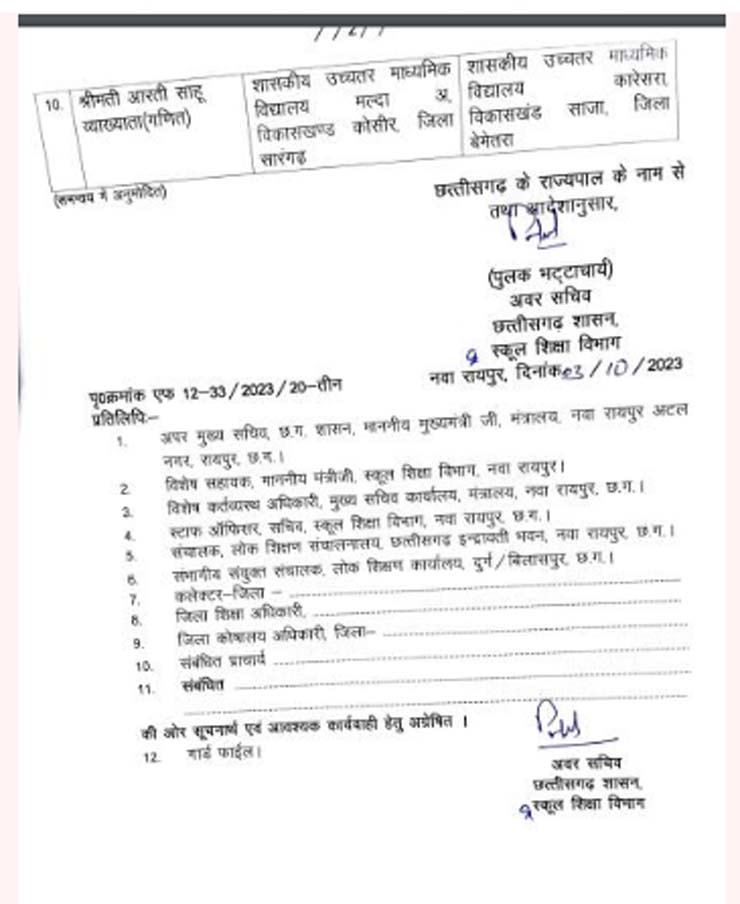 10. श्रीमती आरती साहू व्याख्याता(गणित)
शासकीय उच्चतर माध्यमिक
विद्यालय मल्दा अ,
विकासखण्ड कोसीर, जिला
सारंगढ़
शासकीय उच्चतर माध्यमिक
विद्यालय कारेसरा,
विकासखंड साजा, जिला
बेमेतरा
(समन्वय में अनुमोदित)
छत्तीसगढ़ के राज्यपाल के नाम से
तथा आदेशानुसार,
(पुलक भट्टाचार्य)
अवर सचिव
छत्तीसगढ़ शासन,
स्कूल शिक्षा विभाग
पृ0क्रमांक एफ 12-33/2023/20-तीन
नवा रायपुर, दिनांक 03/10/2023
प्रतिलिपि:-
1. अपर मुख्य सचिव, छ.ग. शासन, माननीय मुख्यमंत्री जी, मंत्रालय, नवा रायपुर अटल
नगर, रायपुर, छ.ग.।
2. विशेष सहायक, माननीय मंत्रीजी, स्कूल शिक्षा विभाग, नवा रायपुर।
3. विशेष कर्तव्यस्थ अधिकारी, मुख्य सचिव कार्यालय, मंत्रालय, नवा रायपुर, छ.ग.।
4. स्टाफ ऑफिसर, सचिव, स्कूल शिक्षा विभाग, नवा रायपुर, छ.ग.।
5. संचालक, लोक शिक्षण संचालनालय, छत्तीसगढ़ इन्द्रावती भवन, नवा रायपुर, छ.ग.।
6. संभागीय संयुक्त संचालक, लोक शिक्षण कार्यालय, दुर्ग/बिलासपुर, छ.ग.।
7. कलेक्टर-जिला -
8. जिला शिक्षा अधिकारी,
9. जिला कोषालय अधिकारी, जिला-
10. संबंधित प्राचार्य
11. संबंधित
की ओर सूचनार्थ एवं आवश्यक कार्यवाही हेतु अग्रेषित ।
12. गार्ड फाईल।
अवर सचिव
छत्तीसगढ़ शासन,
स्कूल शिक्षा विभाग